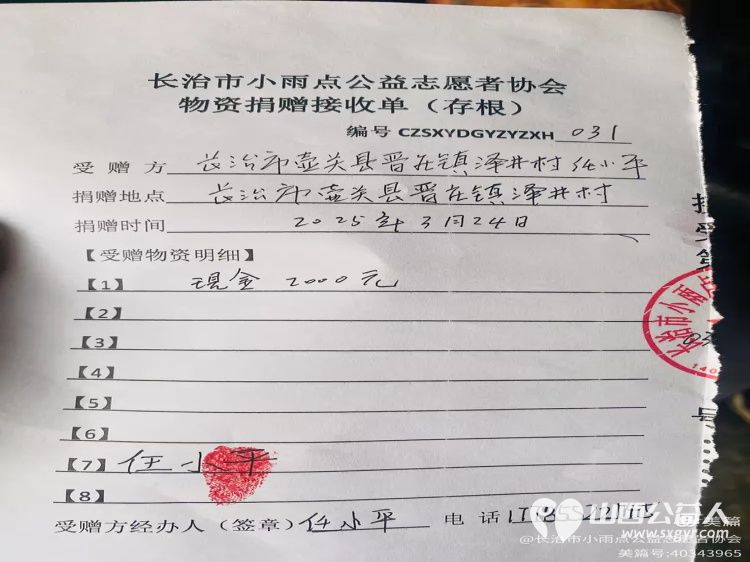 长治市小雨点公益志愿者协会
物资捐赠接收单（存根）
编号 CZSXYDGYZYZXH 031
受赠方 长治市壶关县晋庄镇泽井村 任小平
捐赠地点 长治市壶关县晋庄镇泽井村
捐赠时间 2025年3月24日
【受赠物资明细】
【1】 现金 2000元
【2】
【3】
【4】
【5】
【6】
【7】任小平
【8】
受赠方经办人（签章）任小平 电话
长治市小雨
山西公益人
www.sxgyr.com
美篇
@长治市小雨点公益志愿者协会
美篇号:40343965